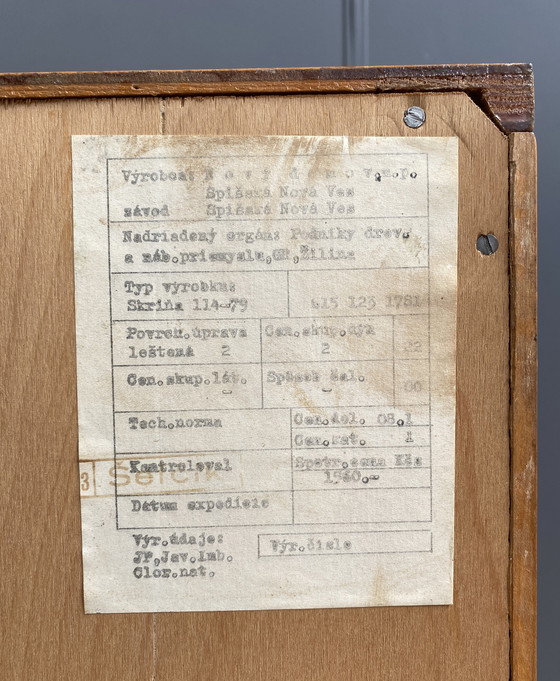 Výrobca: N o v ý d o m o v.n.p.
Spišská Nová Ves
závod Spišská Nová Ves
Nadriadený orgán: Podniky drev.
a náb.priemyslu,GR,Žilina
Typ výrobku:
Skriňa 114-79 615 123 1781
Povrch.úprava Cen.skup.dýh
leštená 2 2 22
Cen.skup.lát. Spôsob čal.
- - 00
Tech.norma Cen.del. 08.1
Cen.rat. 1
Kontroloval Spotr.cena Kčs
3 Šefčík 1960.-
Dátum expedície
Výr.údaje: Výr.číslo
JP,Jav.Imb.
Clor.nat.